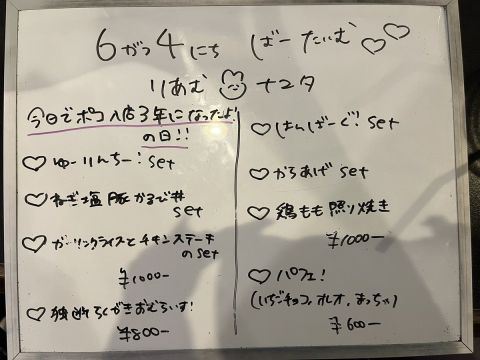 6がつ4にち ばーたいむ♡♡
りあむ ナユタ
今日でポコ入店3年になったよ!
の日!!
♡ゆーりんちー!set
♡ねぎ塩豚かるび丼
set
♡ガーリックライスとチキンステーキ
のset
¥1000-
♡独断らくがきおむらいす!
¥800-
♡はんばーぐ!set
♡からあげset
♡鶏もも照り焼き
¥1000-
♡パフェ!
(いちごチョコ、オレオ、まっちゃ)
¥600-